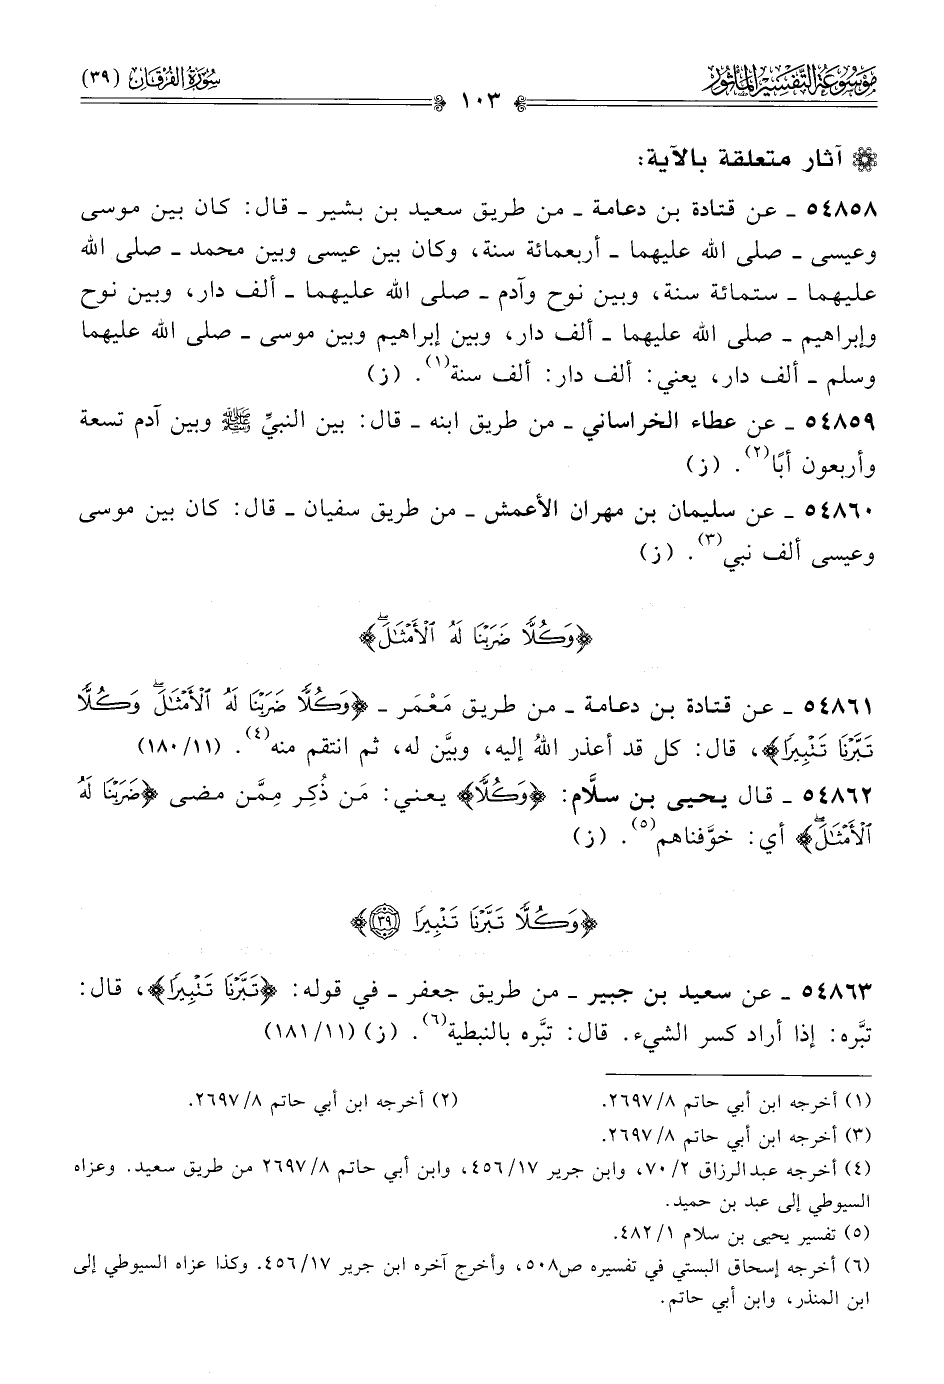 موسوعة التفسير المأثور
سورة الفرقان (٣٩)
١٠٣
آثار متعلقة بالآية:
٥٤٨٥٨ ـ عن قتادة بن دعامة ـ من طريق سعيد بن بشير ـ قال: كان بين موسى
وعيسى ـ صلى الله عليهما ـ أربعمائة سنة، وكان بين عيسى وبين محمد ـ صلى الله
عليهما ـ ستمائة سنة، وبين نوح وآدم ـ صلى الله عليهما ـ ألف دار، وبين نوح
وإبراهيم ـ صلى الله عليهما ـ ألف دار، وبين إبراهيم وبين موسى ـ صلى الله عليهما
وسلم ـ ألف دار، يعني: ألف دار: ألف سنة(١). (ز)
٥٤٨٥٩ ـ عن عطاء الخراساني ـ من طريق ابنه ـ قال: بين النبيِّ ﷺ وبين آدم تسعة
وأربعون أبًا(٢). (ز)
٥٤٨٦٠ ـ عن سليمان بن مهران الأعمش ـ من طريق سفيان ـ قال: كان بين موسى
وعيسى ألف نبي(٣). (ز)
﴿وَكُلًّا ضَرَبْنَا لَهُ الْأَمْثَالَ﴾
٥٤٨٦١ ـ عن قتادة بن دعامة ـ من طريق مَعْمَر ـ ﴿وَكُلًّا ضَرَبْنَا لَهُ الْأَمْثَالَ وَكُلًّا
تَبَّرْنَا تَتْبِيرًا﴾، قال: كل قد أعذر اللهُ إليه، وبيَّن له، ثم انتقم منه(٤). (١١/ ١٨٠)
٥٤٨٦٢ ـ قال يحيى بن سلَّام: ﴿وَكُلًّا﴾ يعني: مَن ذُكِر مِمَّن مضى ﴿ضَرَبْنَا لَهُ
الْأَمْثَالَ﴾ أي: خوَّفناهم(٥). (ز)
﴿وَكُلًّا تَبَّرْنَا تَتْبِيرًا ٣٩﴾
٥٤٨٦٣ ـ عن سعيد بن جبير ـ من طريق جعفر ـ في قوله: ﴿تَبَّرْنَا تَتْبِيرًا﴾، قال:
تبَّره: إذا أراد كسر الشيء. قال: تبَّره بالنبطية(٦). (ز) (١١/ ١٨١)
(١) أخرجه ابن أبي حاتم ٨/ ٢٦٩٧. (٢) أخرجه ابن أبي حاتم ٨/ ٢٦٩٧.
(٣) أخرجه ابن أبي حاتم ٨/ ٢٦٩٧.
(٤) أخرجه عبدالرزاق ٢/ ٧٠، وابن جرير ١٧/ ٤٥٦، وابن أبي حاتم ٨/ ٢٦٩٧ من طريق سعيد. وعزاه
السيوطي إلى عبد بن حميد.
(٥) تفسير يحيى بن سلام ١/ ٤٨٢.
(٦) أخرجه إسحاق البستي في تفسيره ص٥٠٨، وأخرج آخره ابن جرير ١٧/ ٤٥٦. وكذا عزاه السيوطي إلى
ابن المنذر، وابن أبي حاتم.